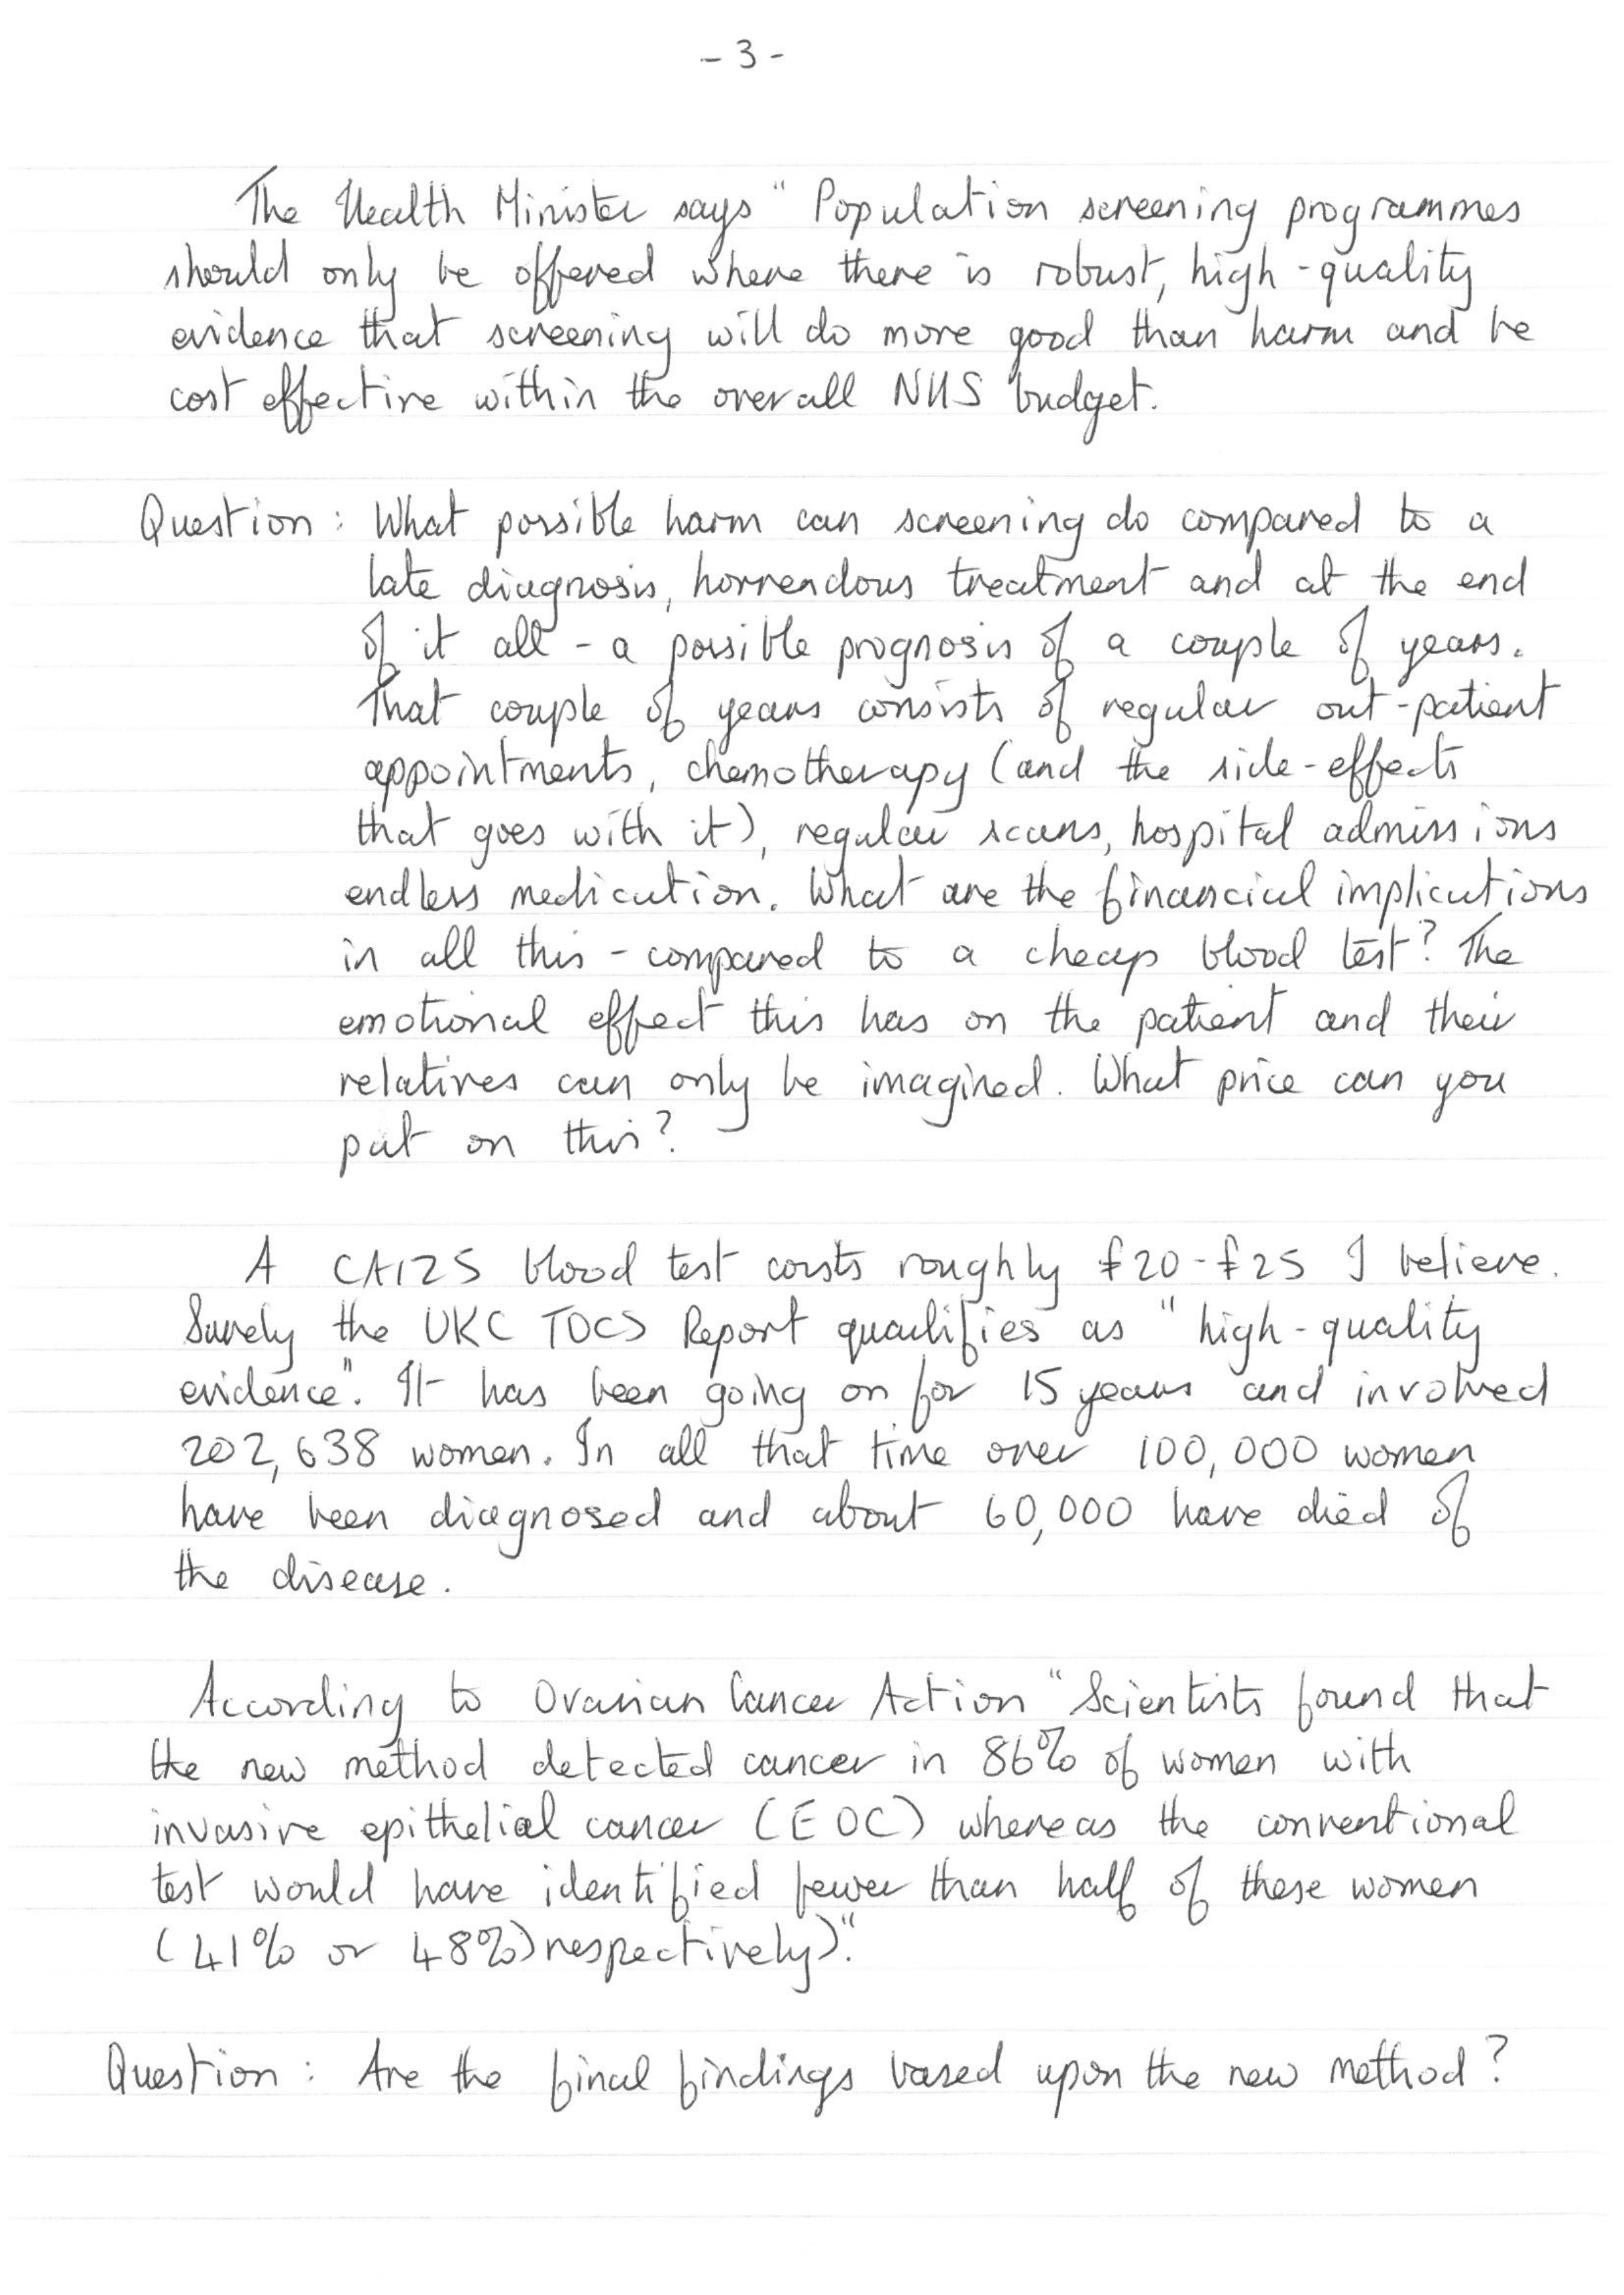 - 3 -
The Health Minister says "Population screening programmes
should only be offered where there is robust, high-quality
evidence that screening will do more good than harm and be
cost effective within the overall NHS budget.
Question: What possible harm can screening do compared to a
late diagnosis, horrendous treatment and at the end
of it all - a possible prognosis of a couple of years.
That couple of years consists of regular out-patient
appointments, chemotherapy (and the side-effects
that goes with it), regular scans, hospital admissions
endless medication. What are the financial implications
in all this - compared to a cheap blood test? The
emotional effect this has on the patient and their
relatives can only be imagined. What price can you
put on this?
A CA125 blood test costs roughly £20-£25 I believe.
Surely the UKC TOCS Report qualifies as "high-quality
evidence". It has been going on for 15 years and involved
202,638 women. In all that time over 100,000 women
have been diagnosed and about 60,000 have died of
the disease.
According to Ovarian Cancer Action "Scientists found that
the new method detected cancer in 86% of women with
invasive epithelial cancer (EOC) whereas the conventional
test would have identified fewer than half of these women
(41% or 48%) respectively)."
Question: Are the final findings based upon the new method?